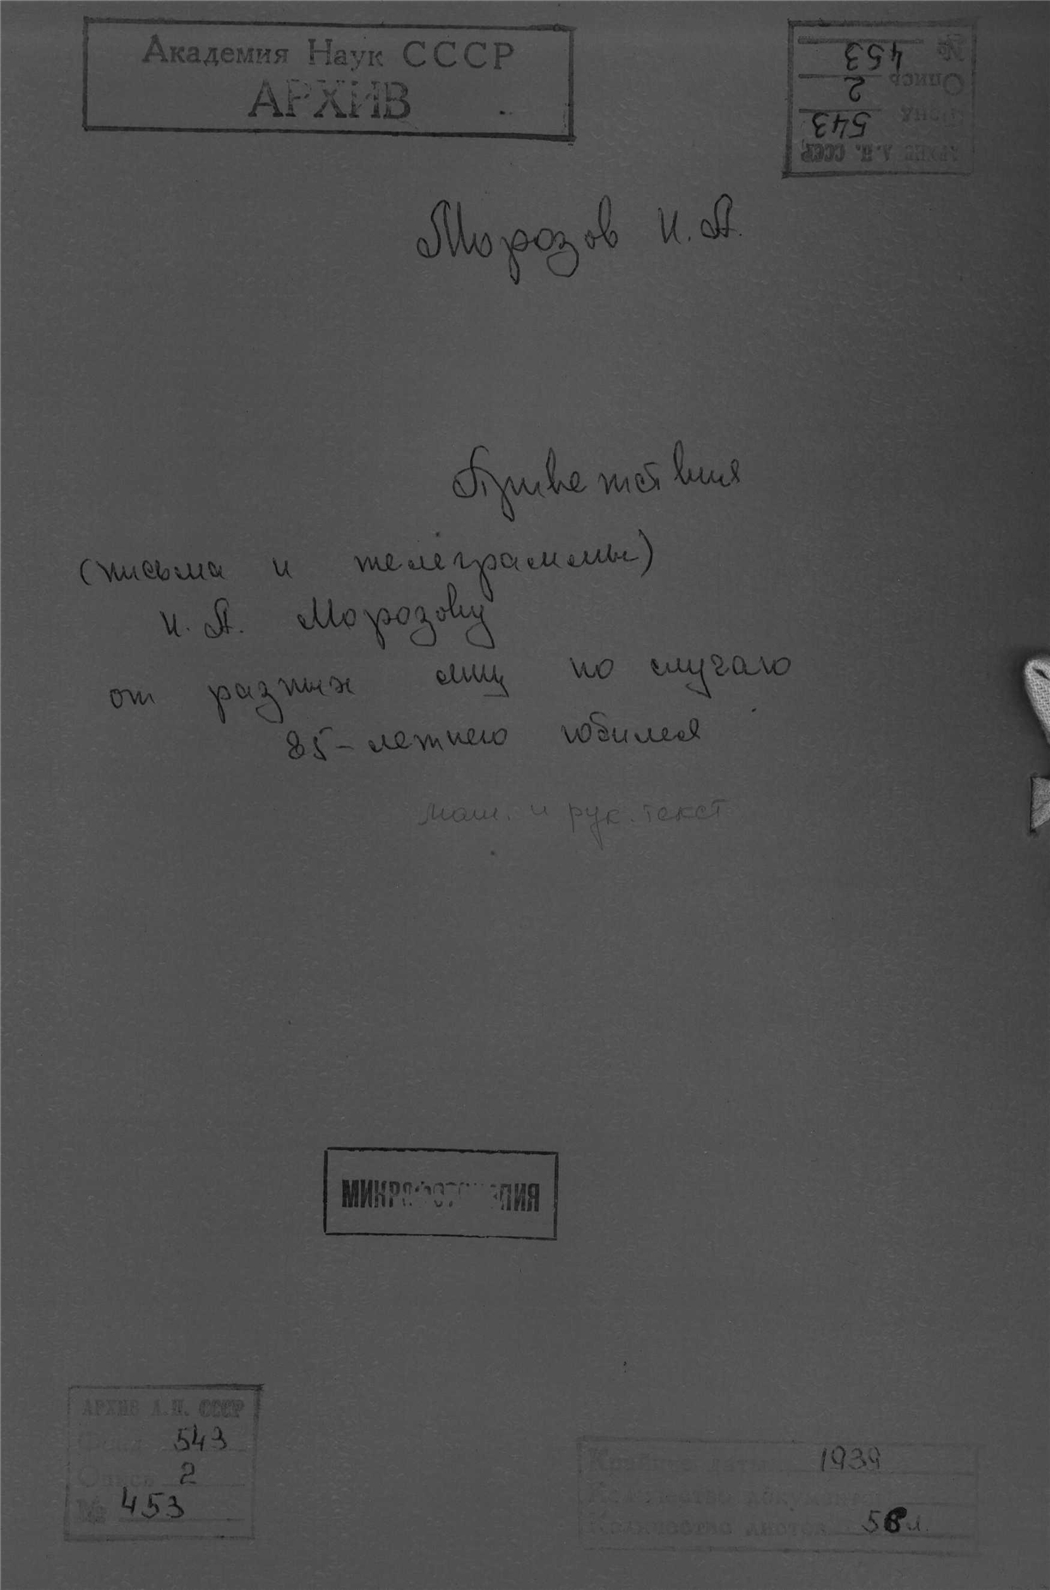 Академия Наук СССР
АРХИВ
АРХИВ А.Н. СССР
Фонд 543
Опись 2
№ 453
Морозов Н. А.
Приветствия
(письма и телеграммы)
Н. А. Морозову
от разных лиц по случаю
85-летнего юбилея
маш. и рук. текст
МИКРОФОТОКОПИЯ
АРХИВ А.Н. СССР
Фонд 543
Опись 2
№ 453
Крайние даты 1939
Количество документов
Количество листов л.